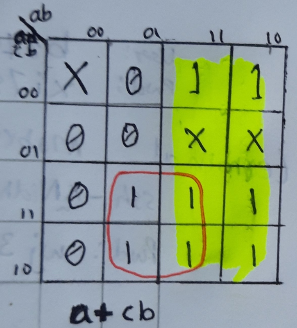 ab
cb 00 01 11 10
00 X 0 1 1
01 0 0 X X
11 0 1 1 1
10 0 1 1 1
a + cb